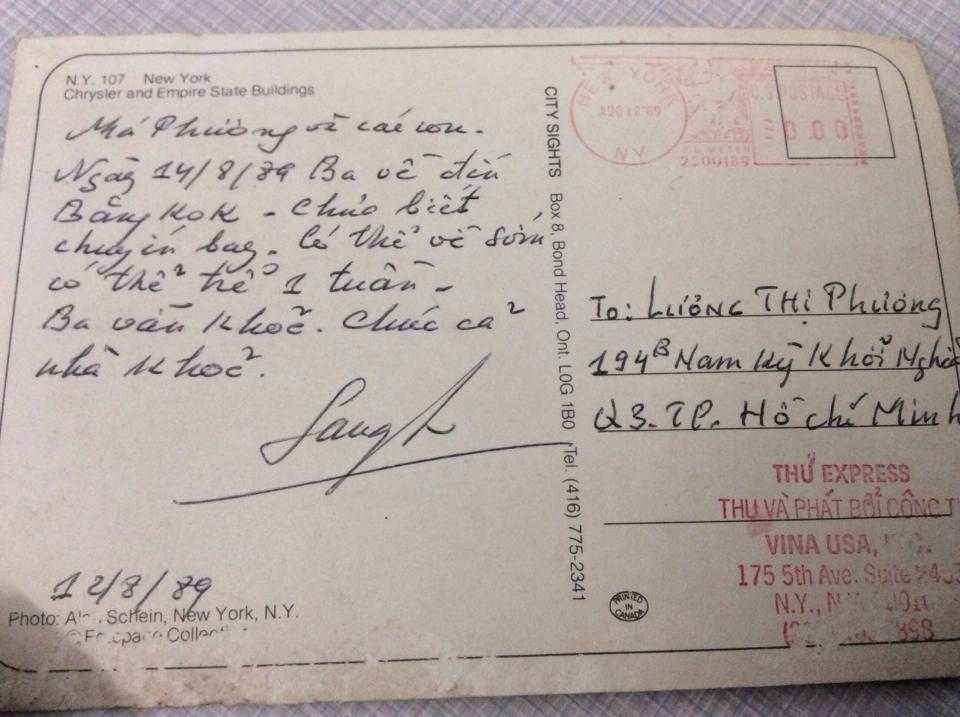 N.Y. 107 New York
Chrysler and Empire State Buildings
Má Phương và các con.
Ngày 14/8/89 Ba về đến
BăngKoK - Chưa biết
chuyến bay. Có thể về sớm
có thể trể 1 tuần -
Ba vẫn Khoẽ. Chúc cả
nhà Khoẻ.
Sang
12/8/89
Photo: Schein, New York, N.Y.
CITY SIGHTS Box 8, Bond Head, Ont. L0G 1B0 Tel. (416) 775-2341
PRINTED IN CANADA
NEW YORK
AUG 12 '89
NY
U.S. POSTAGE
0 0 0
2500189
To: LƯƠNG THị Phương
194B Nam Kỳ Khởi Nghĩa
Q3. TP. Hồ chí Minh
THƯ EXPRESS
THU VÀ PHÁT BỞI CÔNG
VINA USA,
175 5th Ave. Suite
N.Y., N.Y.